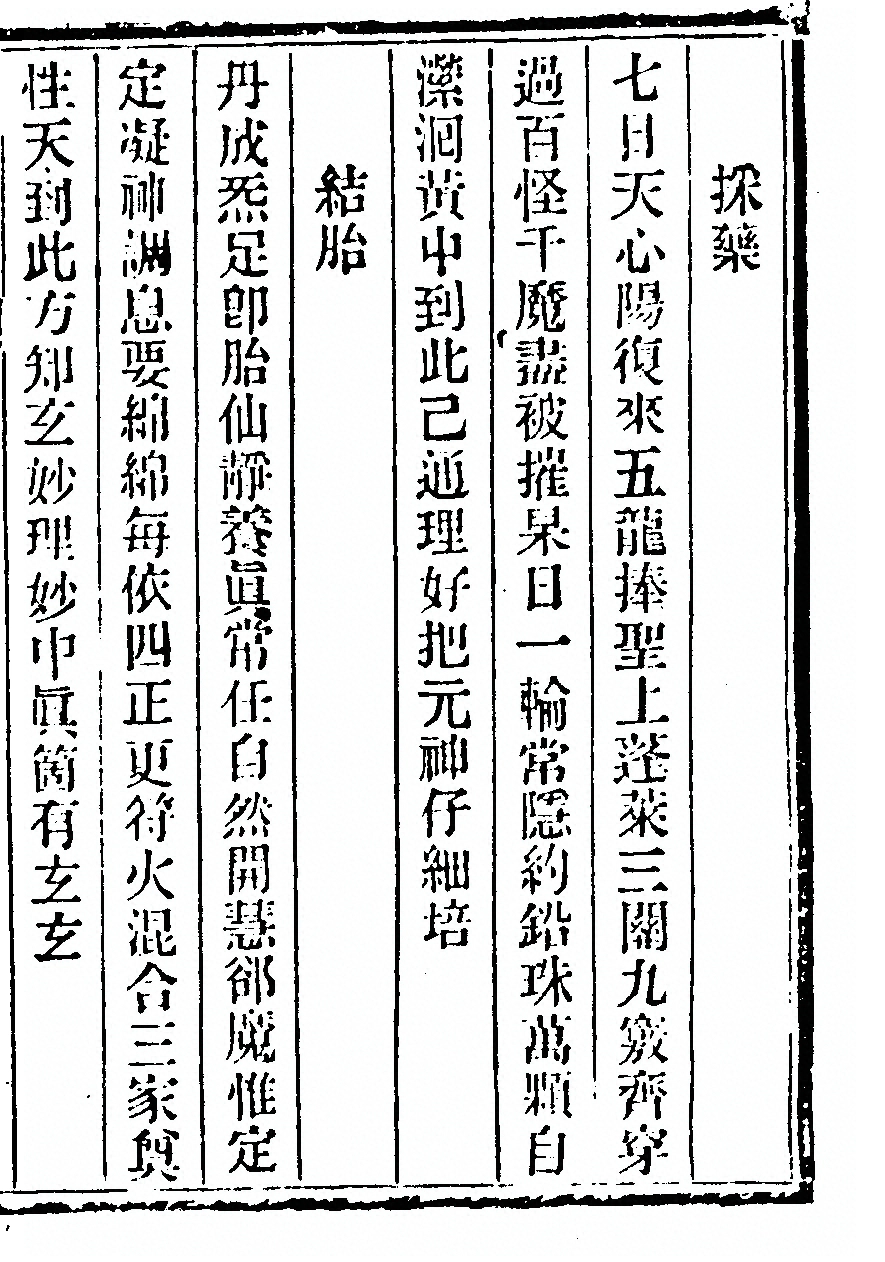 採藥
七日天心陽復來五龍捧聖上蓬萊三關九竅齊穿
過百怪千魔盡被摧杲日一輪常隱約鉛珠萬顆自
瀠洄黃中到此己通理好把元神仔細培
結胎
丹成炁足卽胎仙靜養眞常任自然開慧郤魔惟定
定凝神調息要綿綿每依四正更符火混合三家奠
性天到此方知玄妙理妙中眞箇有玄玄